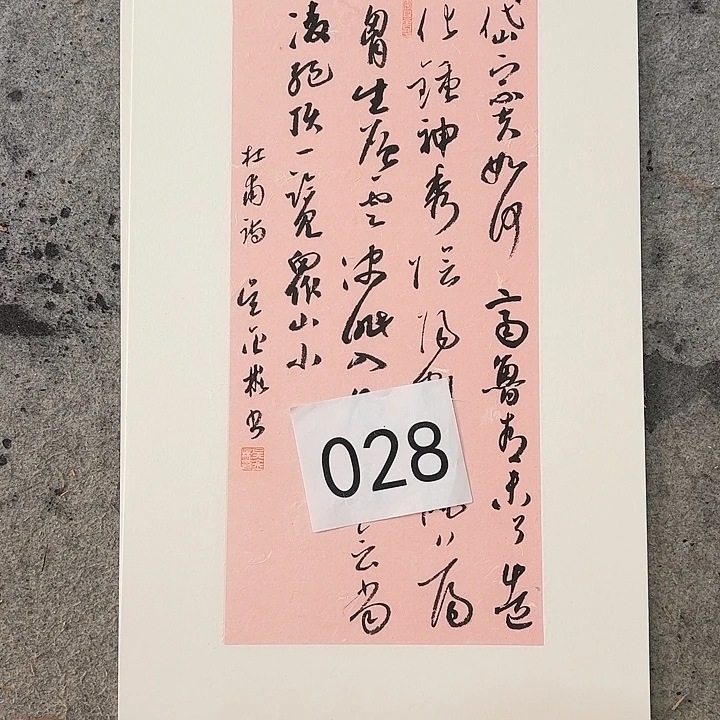 岱宗夫如何齊魯青未了造
化鍾神秀陰陽蕩
胷生层雲決眦入會當
凌絕頂一覽眾山小
杜甫詩 彬書
028